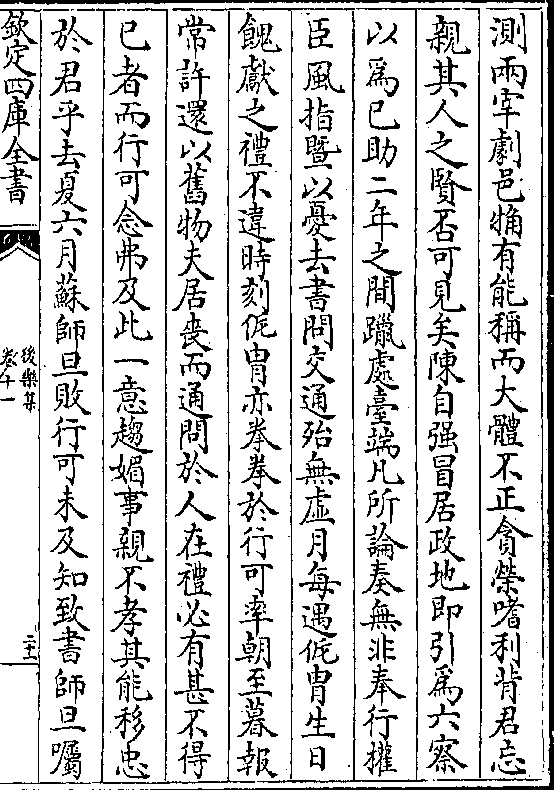 測兩宰劇邑觕有能稱而大體不正貪榮嗜利背君忘
親其人之賢否可見矣陳自强冒居政地即引爲六察
以爲已助二年之間躐處臺端凡所論奏無非奉行權
臣風指曁以憂去書問交通殆無虚月每遇侂胄生日
餽獻之禮不違時刻侂胄亦拳拳於行可率朝至暮報
常許還以舊物夫居喪而通問於人在禮必有甚不得
已者而行可念弗及此一意趨媚事親不孝其能移忠
於君乎去夏六月蘇師旦敗行可未及知致書師旦囑
欽定四庫全書
後樂集
卷十一